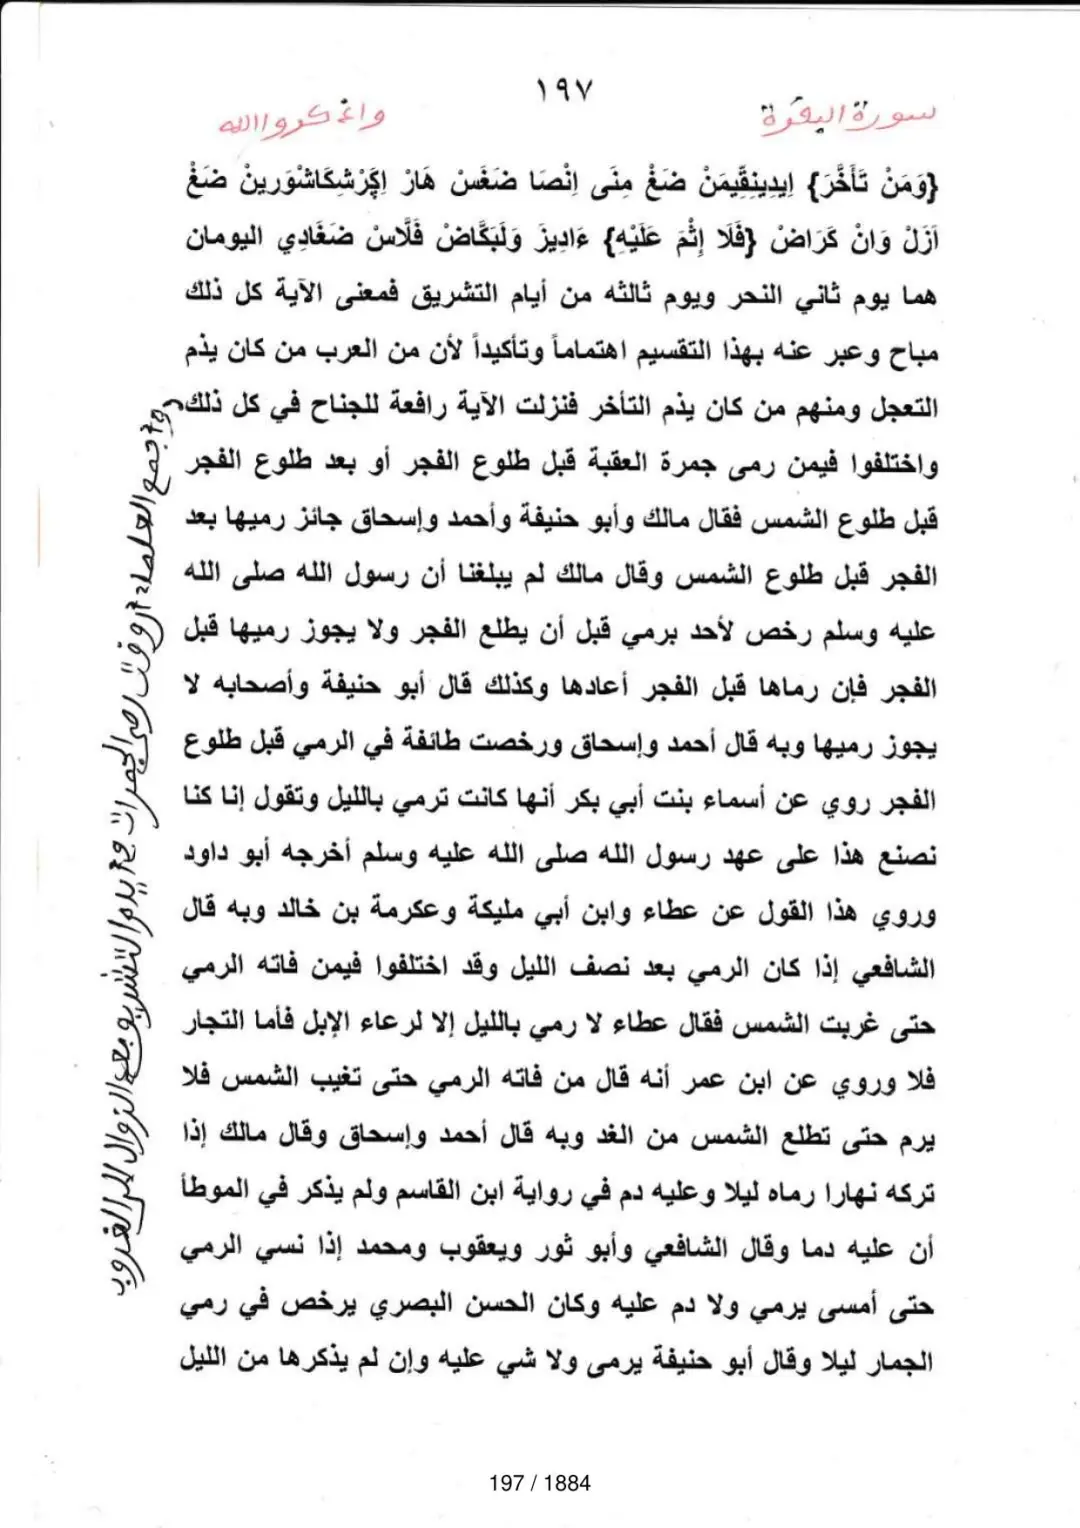 ١٩٧
سورة البقرة
واذكروا الله
{وَمَنْ تَأَخَّرَ} اِيدِينِقِّيمَنْ ضَغْ مِنَى اِنْصَا ضَغَسْ هَارْ اِكَّرْشِكَاشْوَرِينْ ضَغْ
اَزَلْ وَانْ كَرَاضْ {فَلَا إِثْمَ عَلَيْهِ} ءَادِيزَ وَلَبَكَّاضْ فَلَّاسْ ضَغَادِي اليومان
هما يوم ثاني النحر ويوم ثالثه من أيام التشريق فمعنى الآية كل ذلك
مباح وعبر عنه بهذا التقسيم اهتماماً وتأكيداً لأن من العرب من كان يذم
التعجل ومنهم من كان يذم التأخر فنزلت الآية رافعة للجناح في كل ذلك
واختلفوا فيمن رمى جمرة العقبة قبل طلوع الفجر أو بعد طلوع الفجر
قبل طلوع الشمس فقال مالك وأبو حنيفة وأحمد وإسحاق جائز رميها بعد
الفجر قبل طلوع الشمس وقال مالك لم يبلغنا أن رسول الله صلى الله
عليه وسلم رخص لأحد برمي قبل أن يطلع الفجر ولا يجوز رميها قبل
الفجر فإن رماها قبل الفجر أعادها وكذلك قال أبو حنيفة وأصحابه لا
يجوز رميها وبه قال أحمد وإسحاق ورخصت طائفة في الرمي قبل طلوع
الفجر روي عن أسماء بنت أبي بكر أنها كانت ترمي بالليل وتقول إنا كنا
نصنع هذا على عهد رسول الله صلى الله عليه وسلم أخرجه أبو داود
وروي هذا القول عن عطاء وابن أبي مليكة وعكرمة بن خالد وبه قال
الشافعي إذا كان الرمي بعد نصف الليل وقد اختلفوا فيمن فاته الرمي
حتى غربت الشمس فقال عطاء لا رمي بالليل إلا لرعاء الإبل فأما التجار
فلا وروي عن ابن عمر أنه قال من فاته الرمي حتى تغيب الشمس فلا
يرم حتى تطلع الشمس من الغد وبه قال أحمد وإسحاق وقال مالك إذا
تركه نهارا رماه ليلا وعليه دم في رواية ابن القاسم ولم يذكر في الموطأ
أن عليه دما وقال الشافعي وأبو ثور ويعقوب ومحمد إذا نسي الرمي
حتى أمسى يرمي ولا دم عليه وكان الحسن البصري يرخص في رمي
الجمار ليلا وقال أبو حنيفة يرمى ولا شي عليه وإن لم يذكرها من الليل
وأجمع العلماء أن وقت رمي الجمرات في أيام التشريق بعد الزوال إلى الغروب
197 / 1884